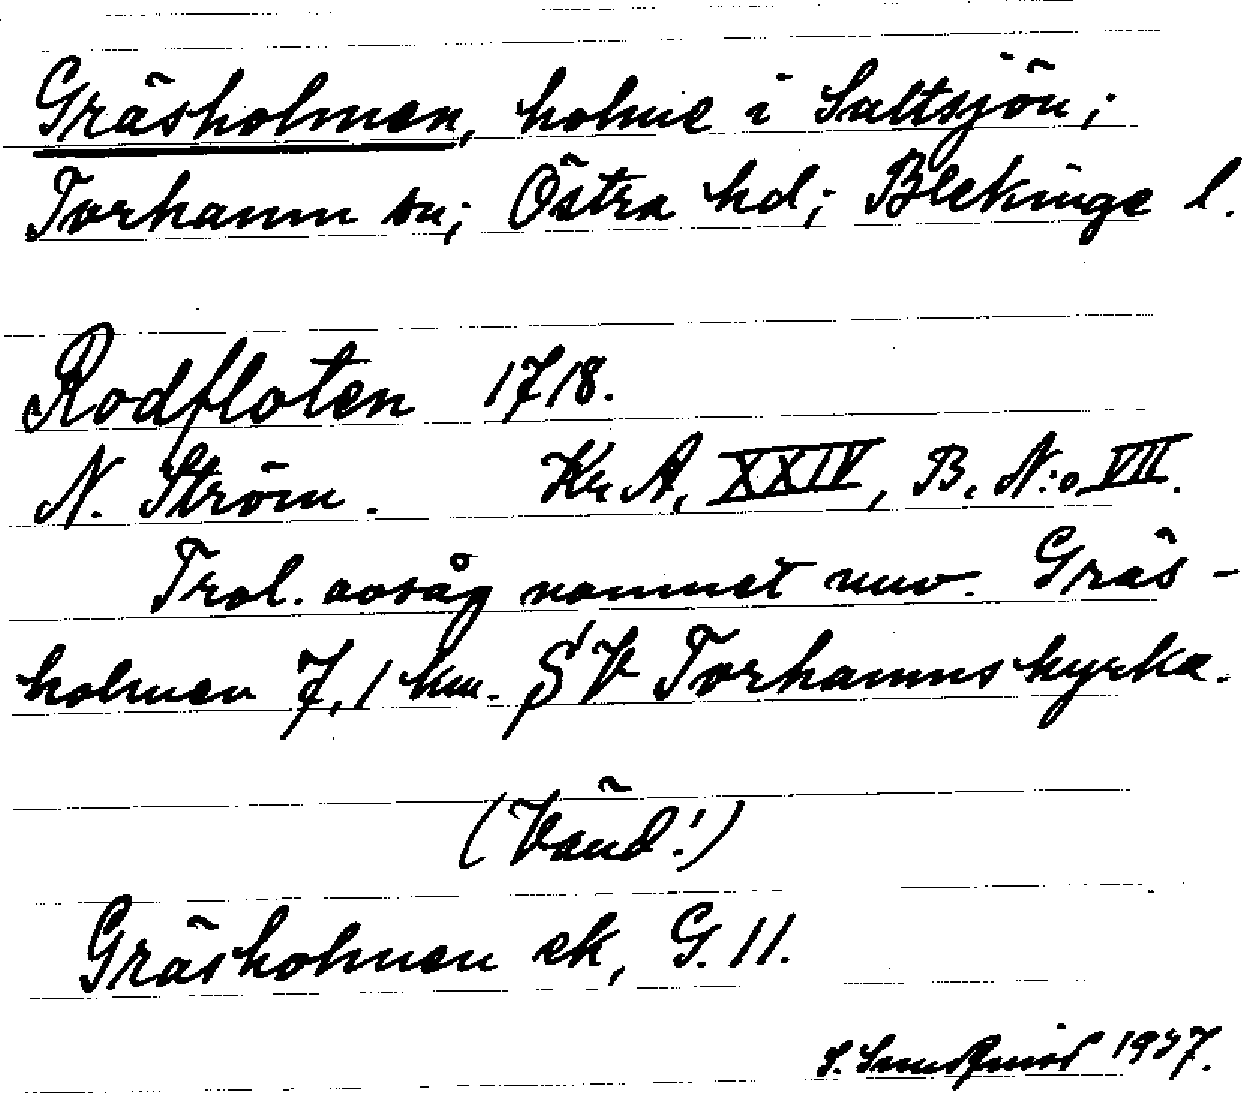 Gräsholmen, holme i Saltsjön;
Torhamn sn; Östra hd; Blekinge l.
Rodfloten 1718.
N. Ström. Kr. A, XXIV, B, N:o VII.
Trol. avsåg namnet nuv. Gräs-
holmen 7,1 km. SV Torhamns kyrka.
(Vänd!)
Gräsholmen ek, G. 11.
S. Sundqvist 1937.